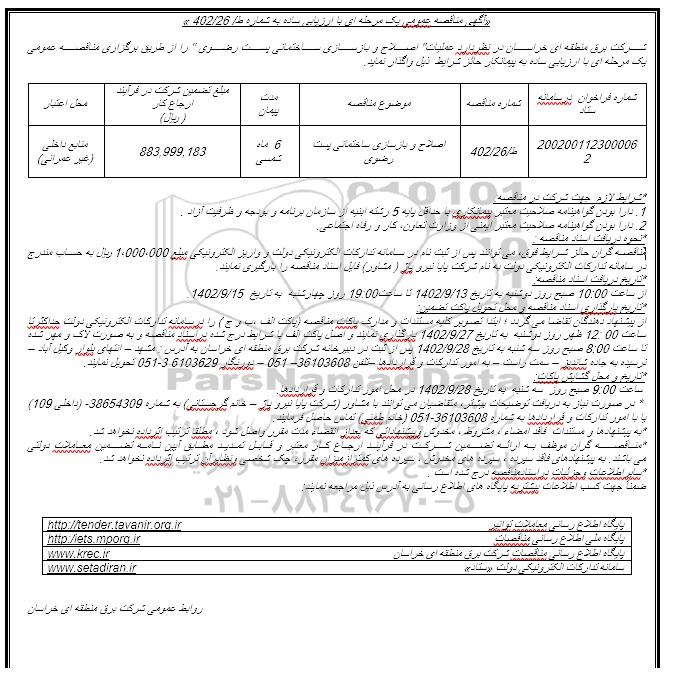 «آگهی مناقصه عمومی یک مرحله ای با ارزیابی ساده به شماره ط/ 402/26 »
شرکت برق منطقه ای خراسان در نظر دارد عملیات" اصلاح و بازسازی ساختمانی پست رضوی " را از طریق برگزاری مناقصه عمومی
یک مرحله ای با ارزیابی ساده به پیمانکار حائز شرایط ذیل واگذار نماید.
شماره فراخوان در سامانه ستاد
شماره مناقصه
موضوع مناقصه
مدت پیمان
مبلغ تضمین شرکت در فرآیند ارجاع کار ( ریال)
محل اعتبار
2002001123000062
ط/402/26
اصلاح و بازسازی ساختمانی پست رضوی
6 ماه شمسی
883,999,183
منابع داخلی (غیر عمرانی)
*شرایط لازم جهت شرکت در مناقصه:
1. دارا بودن گواهینامه صلاحیت معتبر پیمانکاری با حداقل پایه 5 رشته ابنیه از سازمان برنامه و بودجه و ظرفیت آزاد .
2. دارا بودن گواهینامه صلاحیت معتبر ایمنی از وزارت تعاون، کار و رفاه اجتماعی.
*نحوه دریافت اسناد مناقصه :
مناقصه گران حائز شرایط فوق، می توانند پس از ثبت نام در سامانه تدارکات الکترونیکی دولت و واریز الکترونیکی مبلغ 1،000،000 ریال به حساب مندرج
در سامانه تدارکات الکترونیکی دولت به نام شرکت پایا نیرو پاژ ( مشاور) فایل اسناد مناقصه را بارگیری نمایند.
*تاریخ دریافت اسناد مناقصه:
از ساعت 10:00 صبح روز دوشنبه به تاریخ 1402/9/13 تا ساعت19:00 روز چهارشنبه به تاریخ 1402/9/15.
*تاریخ بارگذاری اسناد مناقصه و محل تحویل پاکت تضمین:
از پیشنهاد دهندگان تقاضا می گردد ؛ ابتدا تصویر کلیه مستندات و مدارک پاکات مناقصه (پاکت الف ،ب و ج ) را در سامانه تدارکات الکترونیکی دولت حداکثر تا
ساعت 00: 12 ظهر روز دوشنبه به تاریخ 1402/9/27 بارگذاری نمایند و اصل پاکت الف با شرایط درج شده در اسناد مناقصه و به صورت لاک و مهر شده
تا ساعت 8:00 صبح روز سه شنبه به تاریخ 1402/9/28 پس از ثبت در دبیرخانه شرکت برق منطقه ای خراسان به آدرس : مشهد – انتهای بلوار وکیل آباد –
نرسیده به جاده شاندیز – سمت راست – به امور تدارکات و قراردادها –تلفن 36103608– 051 – دورنگار 6103629 3-051 تحویل نمایند.
*تاریخ و محل گشایش پاکات:
ساعت 9:00 صبح روز سه شنبه به تاریخ 1402/9/28 در محل امور تدارکات و قراردادها.
* در صورت نیاز به دریافت توضیحات بیشتر، متقاضیان می توانند با مشاور (شرکت پایا نیرو پاژ – خانم گرجستانی) به شماره 38654309- (داخلی 109)
یا با امور تدارکات و قراردادها به شماره 36103608-051 (خانم طغنی) تماس حاصل فرمایند.
*به پیشنهادها و مستندات فاقد امضاء ، مشروط، مخدوش و پیشنهاداتی که بعد از انقضاء مدت مقرر واصل شود ، مطلقا ترتیب اثر داده نخواهد شد.
*مناقصه گران موظف به ارائه تضمین شرکت در فرآیند ارجاع کار معتبر و قابل تمدید مطابق آیین نامه تضمین معاملات دولتی
می باشند. به پیشنهادهای فاقد سپرده ، سپرده های مخدوش ، سپرده های کمتر از میزان مقرر، چک شخصی و نظایر آن ترتیب اثر داده نخواهد شد.
*سایر اطلاعات و جزئیات در اسناد مناقصه درج شده است .
ضمناً جهت کسب اطلاعات بیشتر به پایگاه های اطلاع رسانی به آدرس ذیل مراجعه نمایند:
پایگاه اطلاع رسانی معاملات توانیر http://tender.tavanir.org.ir
پایگاه ملی اطلاع رسانی مناقصات http://iets.mporg.ir
پایگاه اطلاع رسانی مناقصات شرکت برق منطقه ای خراسان www.krec.ir
سامانه تدارکات الکترونیکی دولت «ستاد» www.setadiran.ir
روابط عمومی شرکت برق منطقه ای خراسان
ParsNamadData
۰۲۱-۸۸۳۴۹۶۷۰-۵